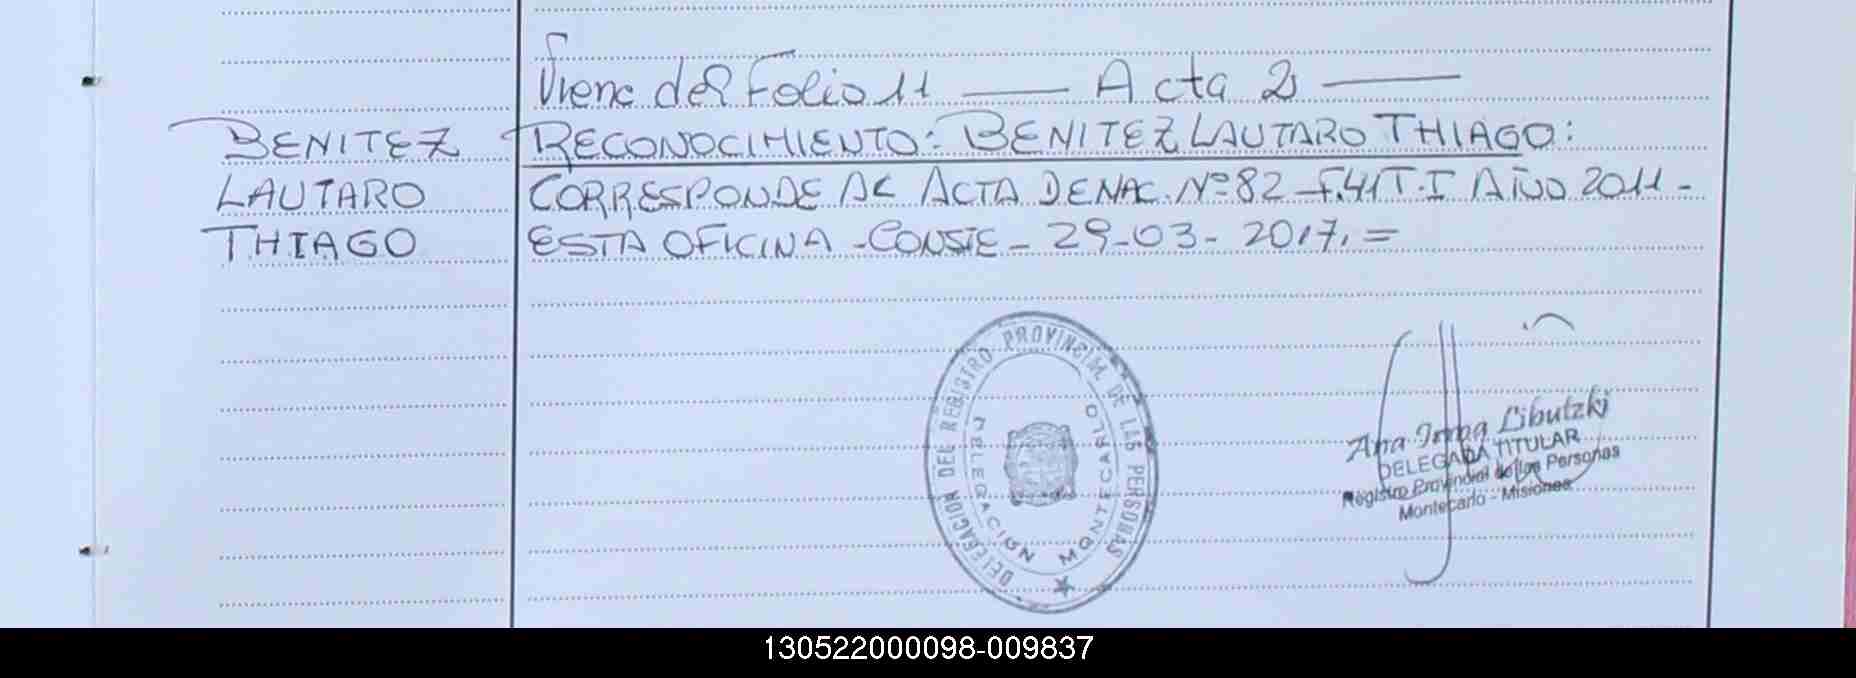 Viene del Folio 11 — Acta 2 —
BENITEZ
LAUTARO
THIAGO
RECONOCIMIENTO: BENITEZ LAUTARO THIAGO:
CORRESPONDE AL ACTA DE NAC. Nº 82 - F. 41 T. I AÑO 2011 -
ESTA OFICINA - CONSTE - 29-03-2017. =
DELEGACION DEL REGISTRO PROVINCIAL DE LAS PERSONAS
DELEGACION MONTECARLO
Ana Irma Libutzki
DELEGADA TITULAR
Registro Provincial de las Personas
Montecarlo - Misiones
130522000098-009837